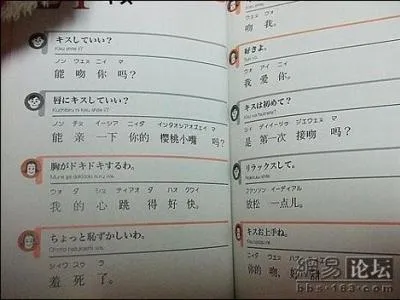 キス
キスしていい?
Kisu shite ii?
ノン ウェン ニイ マ
能 吻 你 吗?
唇にキスしていい?
Kuchibiru ni kisu shite ii?
ノン チェン イーシア ニィダ インタオシアオズェイ マ
能 亲 一下 你的 樱桃小嘴 吗?
胸がドキドキするわ。
Mune ga dokidoki suru wa.
ウォ ダ シュ ティアオ ダ ハオ クワイ
我 的 心 跳 得 好 快。
ちょっと恥ずかしいわ。
Chotto hazukashii wa.
シィウ スゥ ラ
羞 死 了。
ウェン ウォ
吻 我。
好きよ。
ウォ アイ ニィ
我 爱 你。
キスは初めて?
シイ ディイーツゥ ジエウェン マ
是 第一次 接吻 吗?
リラックスして。
ファンソン イーディアル
放松 一点儿。
キスお上手ね。
ニィダ ウェン ハオ
你的 吻,
網易 论坛
bbs.163.com